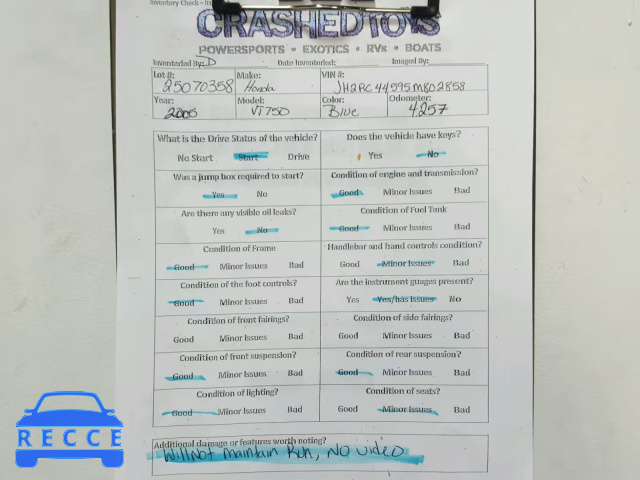 Inventory Check -
CRASHEDTOYS
POWERSPORTS • EXOTICS • RVs • BOATS
Inventoried By: D Date Inventoried: Imaged By:
Lot #: Make: VIN #:
25070358 Honda JH2RC44595M802858
Year: Model: Color: Odometer:
2005 VT750 Blue 4257
What is the Drive Status of the vehicle? Does the vehicle have keys?
No Start Start Drive Yes No
Was a jump box required to start? Condition of engine and transmission?
Yes No Good Minor Issues Bad
Are there any visible oil leaks? Condition of Fuel Tank
Yes No Good Minor Issues Bad
Condition of Frame Handlebar and hand controls condition?
Good Minor Issues Bad Good Minor Issues Bad
Condition of the foot controls? Are the instrument guages present?
Good Minor Issues Bad Yes Yes/has issues No
Condition of front fairings? Condition of side fairings?
Good Minor Issues Bad Good Minor Issues Bad
Condition of front suspension? Condition of rear suspension?
Good Minor Issues Bad Good Minor Issues Bad
Condition of lighting? Condition of seats?
Good Minor Issues Bad Good Minor Issues Bad
Additional damage or features worth noting?
Will Not maintain Run, NO video
RECCE